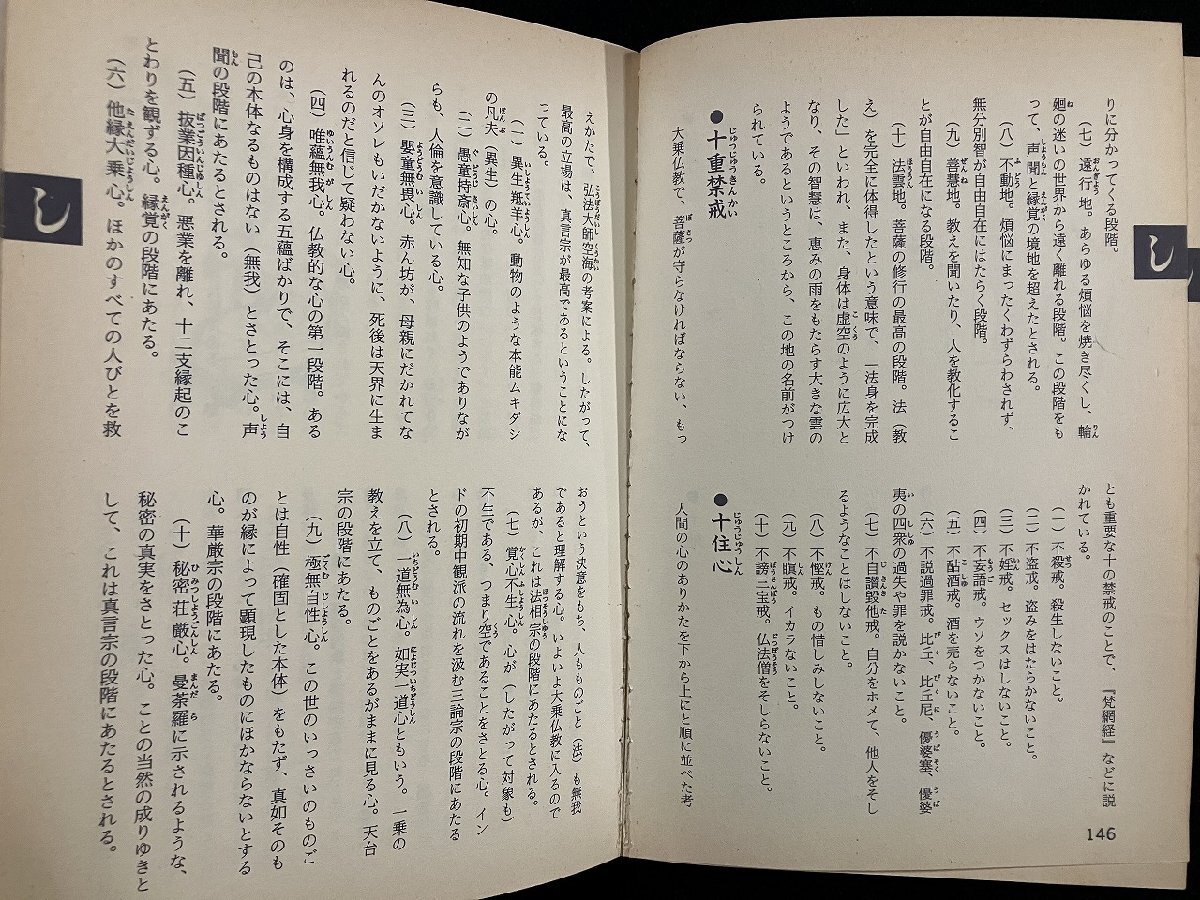 し
146
りに分かってくる段階。
(七) 遠行地。あらゆる煩悩を焼き尽くし、輪
廻の迷いの世界から遠く離れる段階。この段階をも
って、声聞と縁覚の境地を超えたとされる。
(八) 不動地。煩悩にまったくわずらわされず、
無分別智が自由自在にはたらく段階。
(九) 善慧地。教えを聞いたり、人を教化するこ
とが自由自在になる段階。
(十) 法雲地。菩薩の修行の最高の段階。法(教
え)を完全に体得したという意味で、「法身を完成
した」といわれ、また、身体は虚空のように広大と
なり、その智慧に、恵みの雨をもたらす大きな雲の
ようであるというところから、この地の名前がつけ
られている。
●十重禁戒
大乗仏教で、菩薩が守らなければならない、もっ
とも重要な十の禁戒のことで、『梵網経』などに説
かれている。
(一) 不殺戒。殺生しないこと。
(二) 不盗戒。盗みをはたらかないこと。
(三) 不婬戒。セックスはしないこと。
(四) 不妄語戒。ウソをつかないこと。
(五) 不酤酒戒。酒を売らないこと。
(六) 不説過罪戒。比丘、比丘尼、優婆塞、優婆
夷の四衆の過失や罪を説かないこと。
(七) 不自讃毀他戒。自分をホメて、他人をそし
るようなことはしないこと。
(八) 不慳戒。もの惜しみしないこと。
(九) 不瞋戒。イカラないこと。
(十) 不謗三宝戒。仏法僧をそしらないこと。
●十住心
人間の心のありかたを下から上にと順に並べた考
えかたで、弘法大師空海の考案による。したがって、
最高の立場は、真言宗が最高であるということにな
っている。
(一) 異生羝羊心。動物のような本能ムキダシ
の凡夫(異生)の心。
(二) 愚童持斎心。無知な子供のようでありなが
らも、人倫を意識している心。
(三) 嬰童無畏心。赤ん坊が、母親にだかれてな
んのオソレもいだかないように、死後は天界に生ま
れるのだと信じて疑わない心。
(四) 唯蘊無我心。仏教的な心の第一段階。ある
のは、心身を構成する五蘊ばかりで、そこには、自
己の本体なるものはない(無我)とさとった心。声
聞の段階にあたるとされる。
(五) 抜業因種心。悪業を離れ、十二支縁起のこ
とわりを観ずる心。縁覚の段階にあたる。
(六) 他縁大乗心。ほかのすべての人びとを救
おうという決意をもち、人もものごと(法)も無我
であると理解する心。いよいよ大乗仏教に入るので
あるが、これは法相宗の段階にあたるとされる。
(七) 覚心不生心。心が(したがって対象も)
不生である、つまり空であることをさとる心。イン
ドの初期中観派の流れを汲む三論宗の段階にあたる
とされる。
(八) 一道無為心。如実一道心ともいう。一乗の
教えを立て、ものごとをあるがままに見る心。天台
宗の段階にあたる。
(九) 極無自性心。この世のいっさいのものご
とは自性(確固とした本体)をもたず、真如そのも
のが縁によって顕現したものにほかならないとする
心。華厳宗の段階にあたる。
(十) 秘密荘厳心。曼荼羅に示されるような、
秘密の真実をさとった心。ことの当然の成りゆきと
して、これは真言宗の段階にあたるとされる。
し